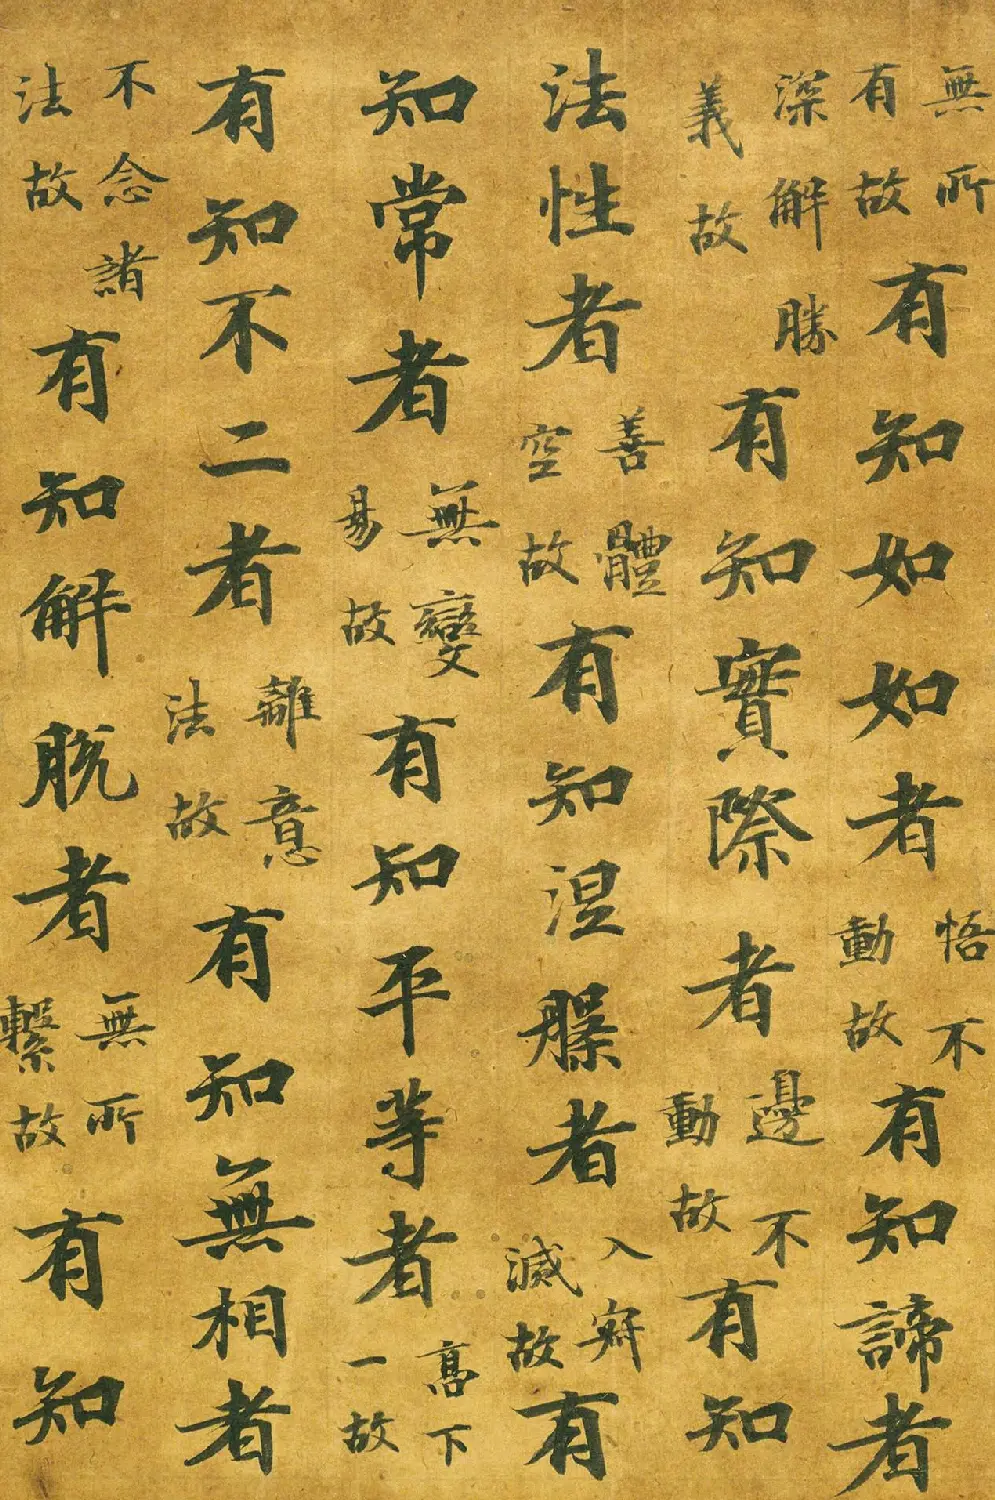 無所有故有知如如者悟不動故有知諦者
深解勝義故有知實際者邊不動故有知
法性者善體空故有知涅槃者入寂滅故有
知常者無變易故有知平等者高下一故
有知不二者離意法故有知無相者
不念諸法故有知解脫者無所繫故有知